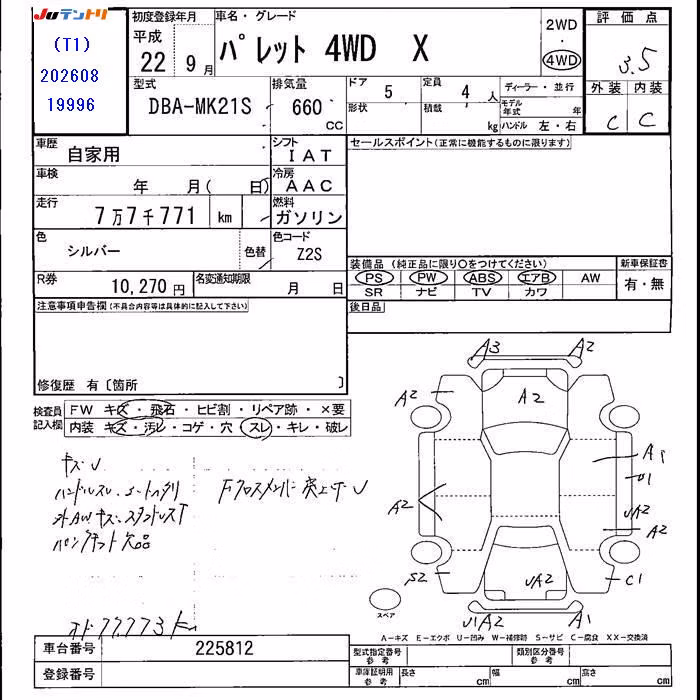 Juテントリ
(T1)
202608
19996
初度登録年月
平成
22 9月
車名・グレード
パレット 4WD X
2WD
・
4WD
評価点
3.5
外装 内装
C C
型式
DBA-MK21S
排気量
660
CC
ドア
5
形状
定員
4人
積載
kg
ディーラー・並行
モデル年式 年
ハンドル 左・右
車歴
自家用
シフト
IAT
セールスポイント(正常に機能するものに限ります)
車検
年 月( 日)
冷房
AAC
走行
7万7千771 km
燃料
ガソリン
色
シルバー
色替
色コード
Z2S
R券
10,270円
名変通知期限
月 日
装備品 (純正品に限り○をつけてください)
新車保証書
PS PW ABS エアB AW
有・無
SR ナビ TV カワ
後日品
注意事項申告欄(不具合内容等は具体的に記入して下さい)
修復歴 有〔箇所 〕
検査員記入欄
FW キズ・飛石・ヒビ割・リペア跡・×要
内装 キズ・汚レ・コゲ・穴・スレ・キレ・破レ
キズU
ハンドルスレ、シート
外AWキズ、スタンドリスト
パンクキット欠品
Fクロスメンバー突上ゲU
オド77773km
A3 A2
A2 A2
A1
U1
A2
UA2
A2
S2 UA2 C1
スペア
U1A2 A1
A-キズ E-エクボ U-凹み W-補修跡 S-サビ C-腐食 XX-交換済
車台番号 225812
登録番号
型式指定番号
参考
類別区分番号
参考
車庫証明用
参考
長さ cm 幅 cm 高さ cm